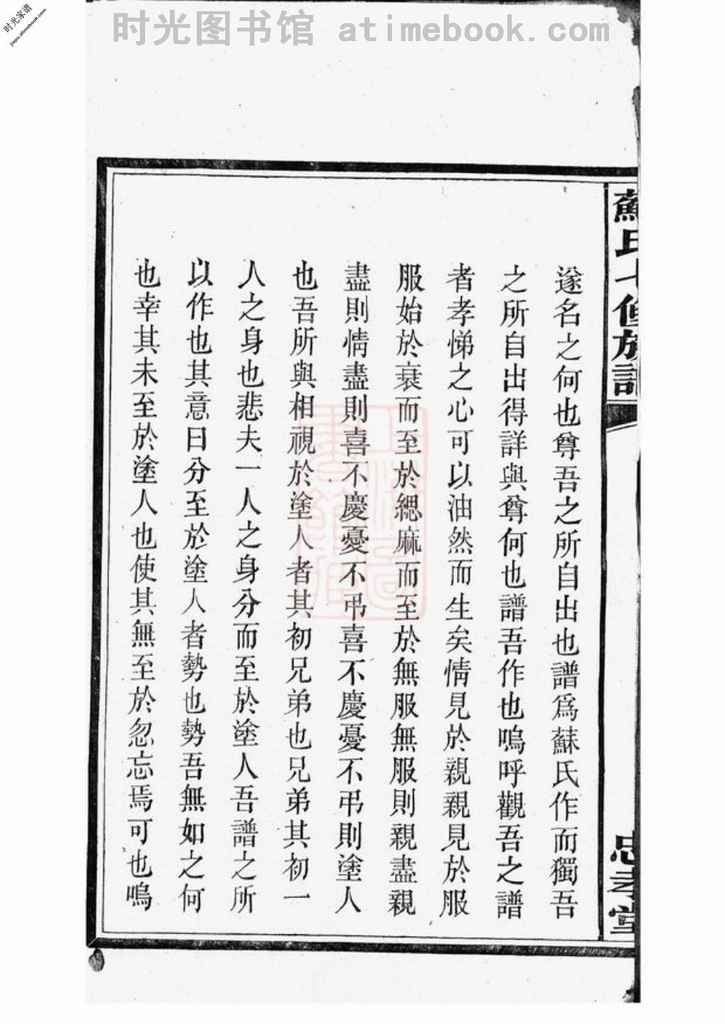 时光图书馆 atimebook.com
时光家谱
蘇氏七修族譜
忠孝堂
遂名之何也尊吾之所自出也譜爲蘇氏作而獨吾
之所自出得詳與尊何也譜吾作也嗚呼觀吾之譜
者孝悌之心可以油然而生矣情見於親親見於服
服始於衰而至於緦麻而至於無服無服則親盡親
盡則情盡則喜不慶憂不弔喜不慶憂不弔則塗人
也吾所與相視於塗人者其初兄弟也兄弟其初一
人之身也悲夫一人之身分而至於塗人吾譜之所
以作也其意曰分至於塗人者勢也勢吾無如之何
也幸其未至於塗人也使其無至於忽忘焉可也嗚